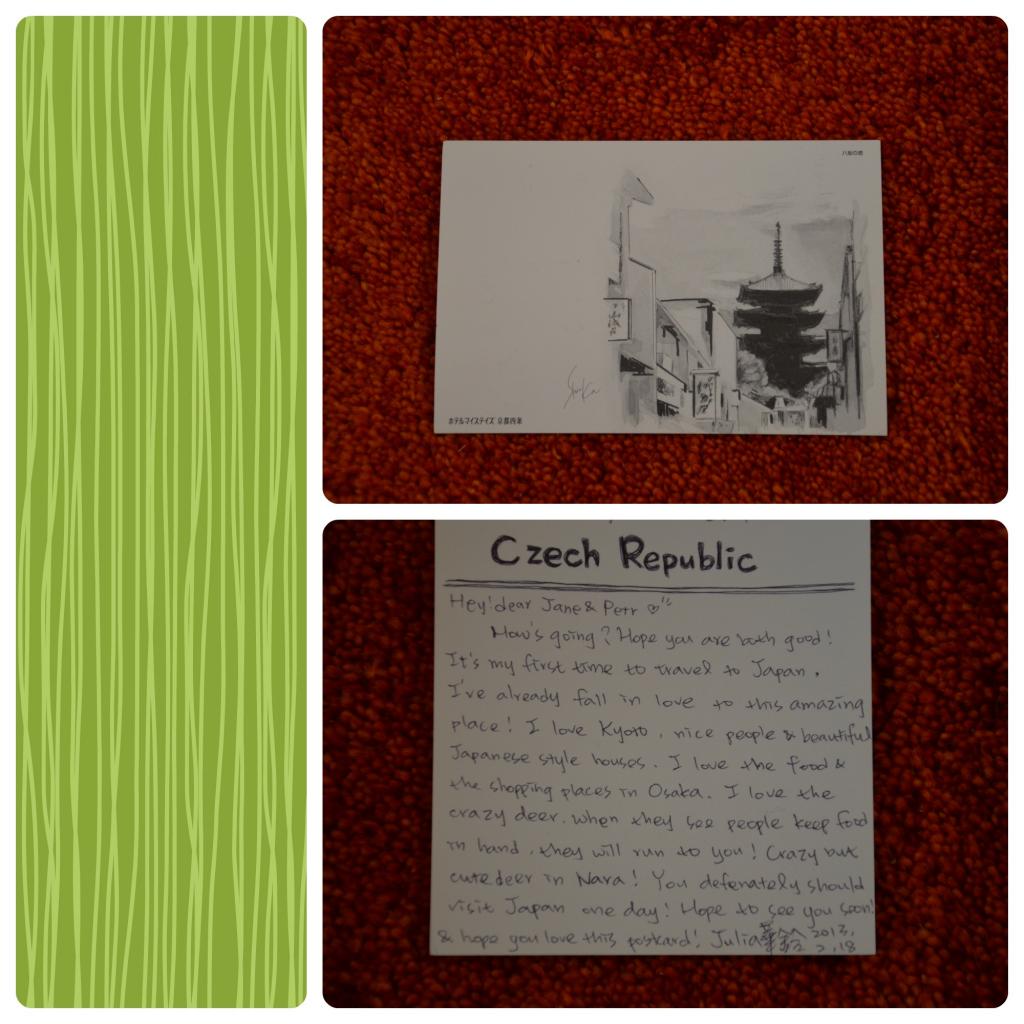 八坂の塔
Shinka
ホテルマイステイズ 京都四条
Czech Republic
Hey! dear Jane & Petr ♡
How's going? Hope you are both good!
It's my first time to travel to Japan.
I've already fall in love to this amazing
place! I love Kyoto, nice people & beautiful
Japanese style houses. I love the food &
the shopping places in Osaka. I love the
crazy deer. When they see people keep food
in hand, they will run to you! Crazy but
cute deer in Nara! You defenately should
visit Japan one day! Hope to see you soon!
& hope you love this postcard! Julia 2013.
2.18